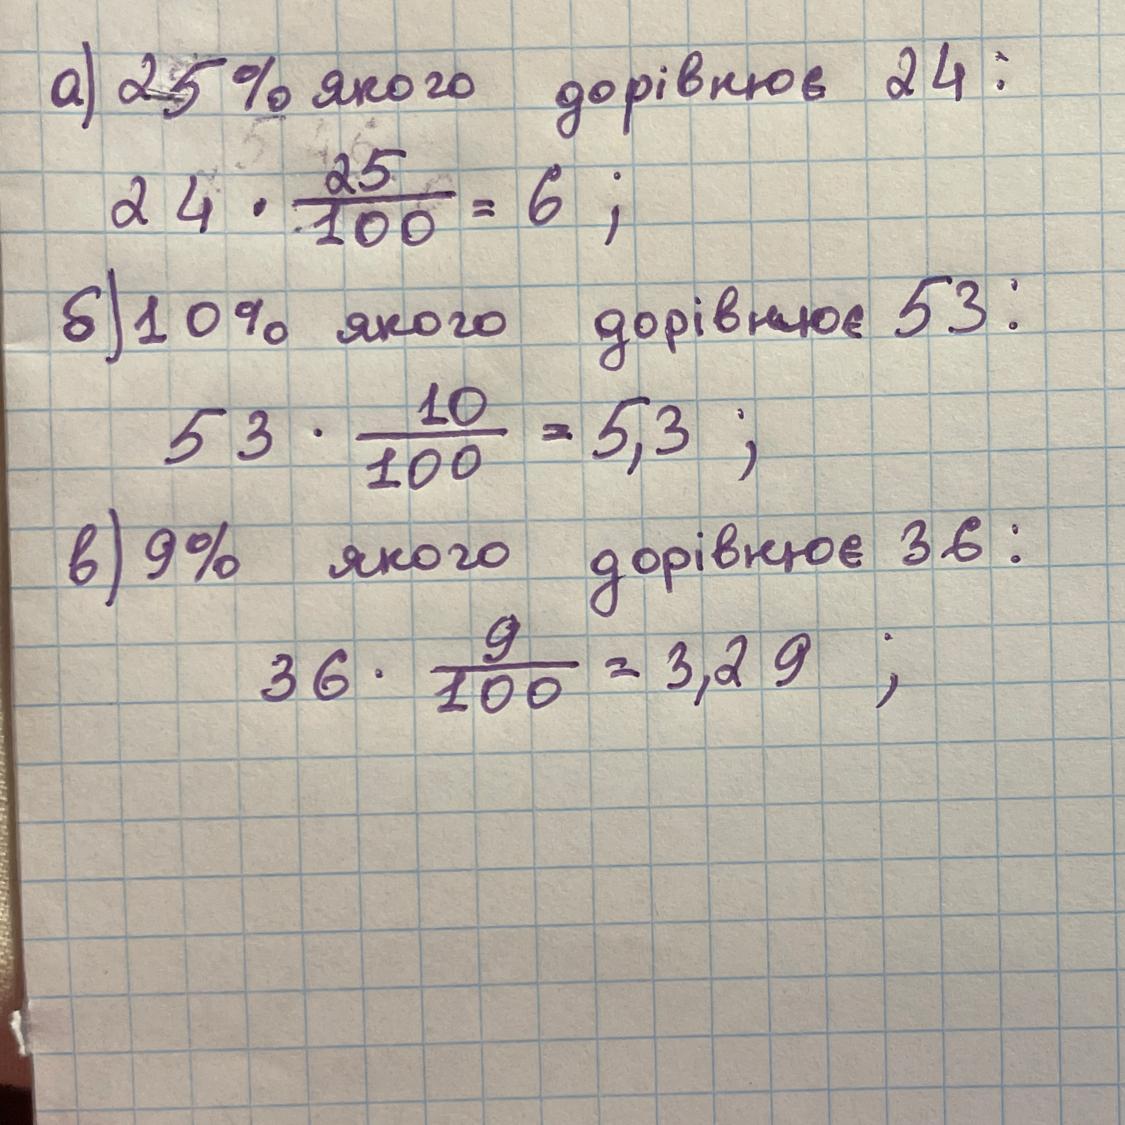 а) 25% якого дорівнює 24:
24 · 25/100 = 6 ;
б) 10% якого дорівнює 53:
53 · 10/100 = 5,3 ;
в) 9% якого дорівнює 36:
36 · 9/100 = 3,29 ;